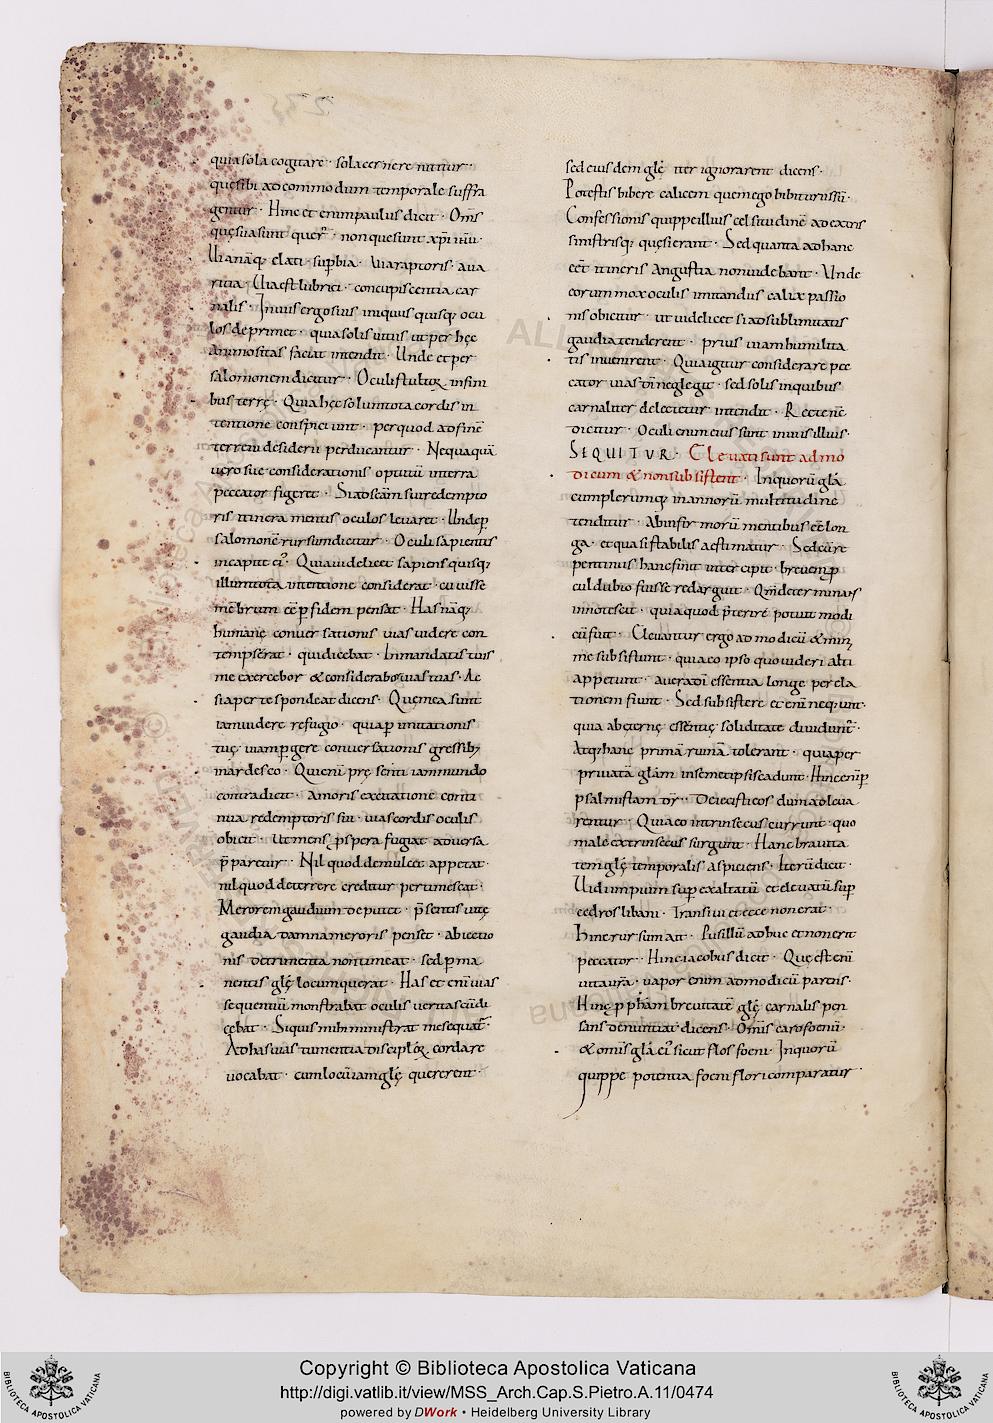 quia sola cogitare · sola cernere nititur ·
quę sibi ad commodum temporale suffra
gentur · Hinc et enim paulus dicit · Om̅s
quę sua sunt quer̅ · non que sunt xp̅i
Via namq; elati · sup̅bia · Via raptoris · aua
ritia · Via est lubrici · concupiscentia car
nalis · In uiis ergo suis iniquus quisq; ocu
los deprimet · quia solis uitiis ut per hęc
animositas faciat intendit · Unde et per
salomonem dicitur · Oculi stultor̅ in fini
bus terrę · Quia hęc solum tota cordis in
tentione conspiciunt · per quod ad fine̅
terreni desiderii perducantur · Nequaqua̅
uero sue considerationis optutu̅ in terra
peccator figeret · Si ad sc̅am sui redempto
ris itinera mentis oculos leuaret · Unde p̅
salomone̅ rursum dicitur · Oculi sapientis
in capite ei' · Quia uidelicet sapiens quisq;
illum tota intentione considerat · cui uisse
me̅brum ee̅ p̅ fidem pensat · Has na̅q;
humanę conuersationis uias uidere con
tempserat · qui dicebat · In mandatis tuis
me exercebor & considerabo uias tuas · Ac
si aperte spondeat dicens · Quę mea sunt
iam uidere refugio · quia p̅ imitationis
tuę · uiam p̅gere conuersationis gressib;
inardesco · Qui eni̅ pręsenti iam mundo
contradicit · amoris excitatione conti
nua redemptoris sui · uias cordis oculis
obicit · Ut mens p̅spera fugiat aduersa
p̅paretur · Nil quod demulcet appetat ·
nil quod deterrere creditur pertimescat ·
Merorem gaudium deputet · p̅sentis uitę
gaudia damna meroris penset · abiectio
nis detrimenta non timeat · sed p̅ ma
nentis glę̅ locum querat · Has et eni̅ uias
sequentiu̅ monstrabat oculis ueritas cu̅ di
cebat · Siquis mihi ministrat me sequat̅ ·
Ad has uias tumentia discipulor̅ corda re
uocabat · cum locu̅ iam glę̅ quererent ·
sed eiusdem glę̅ iter ignorarent dicens ·
Potestis bibere calicem quem ego bibiturus su̅ ·
Confessionis quippe illius celsitudine̅ ad dextris
sinistrisq; quęsierant · Sed quanta ad hanc
eet̅ itineris angustia non uidebant · Unde
eorum mox oculis imitandus calix passio
nis obicitur · ut uidelicet si ad sublimitatis
gaudia tenderent · prius uiam humilita
tis inuenirent · Quia igitur considerare pec
cator uias d̅i neglegit · sed solis in quibus
carnaliter delectetur intendit · Recte ne̅
dicitur · Oculi enim eius sunt in uiis illius ·
SEQUITVR · Eleuati sunt ad mo
dicum & non subsistent · Iniquoru̅ gla̅
cum plerumq; in annoru̅ multitudine
tenditur · ab infirmoru̅ mentibus ee̅ lon
ga · et quasi stabilis aestimatur · Sed cu̅ re
pentinus hanc finit intercipit · breuem p̅
cul dubio fuisse redarguit · Qm̅ determinans
innotescit · quia quod p̅terire potuit modi
cu̅ fuit · Eleuantur ergo ad modicu̅ & min
me subsistunt · quia eo ipso quo uideri alti
appetunt · a uera d̅i essentia longe per ela
tionem fiunt · Sed subsistere et eni̅ neq;unt ·
quia ab ęternę essentię soliditate diuidunt̅ ·
Atq; hanc prima̅ ruina̅ tolerant · quia per
priuata̅ gla̅m in semetipsis cadunt · Hinc eni̅ p̅
psalmistam dr̅ · Deiecisti eos dum adleua
rentur · Quia eo intrinsecus currunt · quo
male extrinsecus surgunt · Hanc breuita
tem glę̅ temporalis aspiciens · Iteru̅ dicit ·
Uidi impium sup̅exaltatu̅ et eleuatu̅ sup̅
cedros libani · Transiui et ecce non erat ·
Hinc rursum ait · Pusillu̅ adhuc et non erit
peccator · Hinc iacobus dicit · Quę est eni̅
uita ura̅ · uapor enim ad modicu̅ parens ·
Hinc p̅ p̅heta̅m breuitate̅ glę̅ carnalis pen
sans denuntiat dicens · Om̅is caro foenu̅ ·
& om̅is gla̅ ei' sicut flos foeni · Iniquoru̅
quippe potentia foeni flori comparatur ·
Copyright © Biblioteca Apostolica Vaticana
http://digi.vatlib.it/view/MSS_Arch.Cap.S.Pietro.A.11/0474
powered by DWork • Heidelberg University Library
BIBLIOTECA APOSTOLICA VATICANA
BIBLIOTECA APOSTOLICA VATICANA